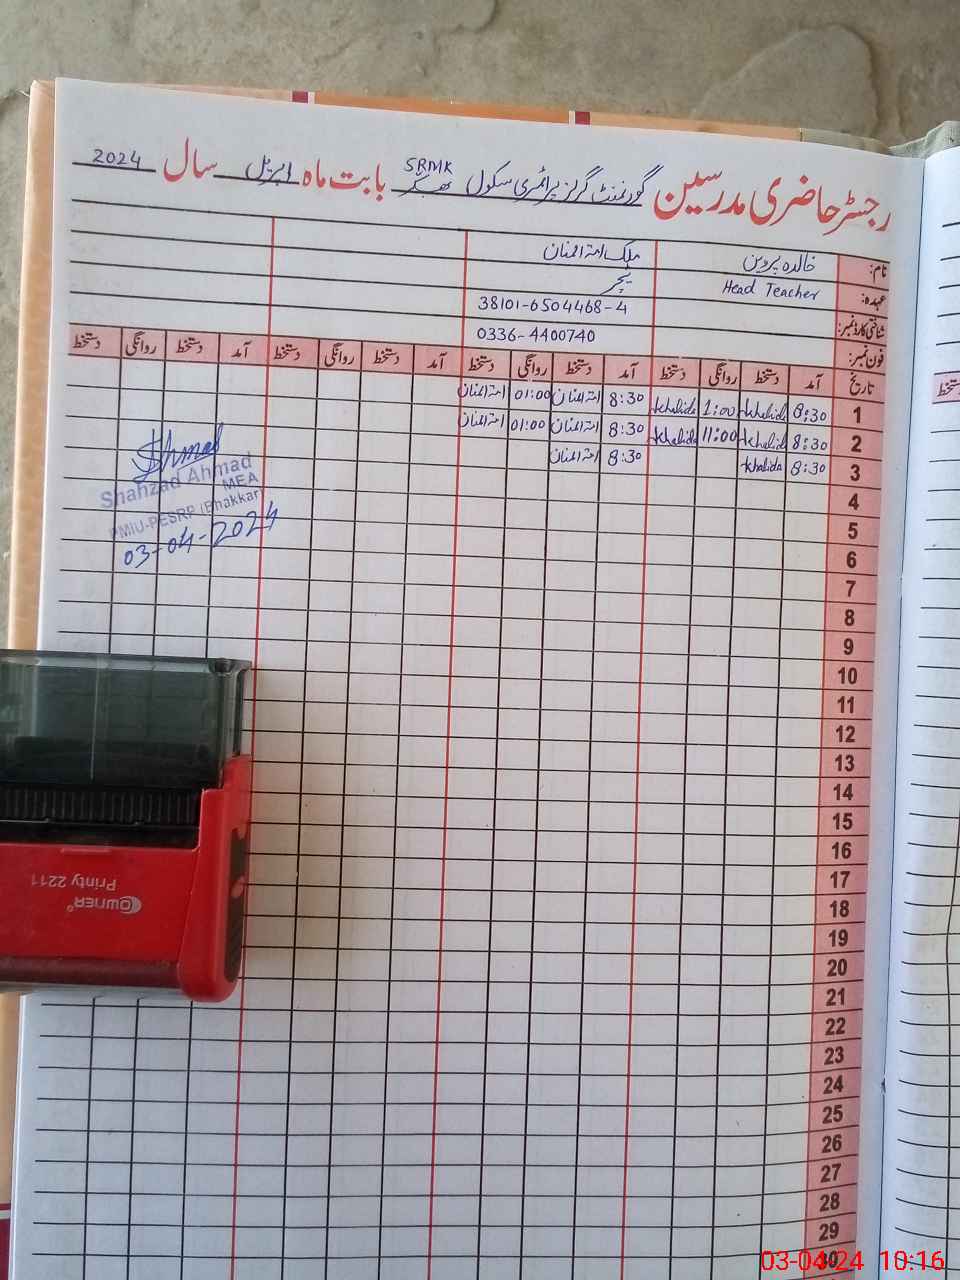 رجسٹر حاضری مدرسین گورنمنٹ گرلز پرائمری سکول SRMK بھکر بابت ماہ اپریل سال 2024
نام: خالدہ پروین ملک امۃ المنان
عہدہ: Head Teacher ٹیچر
شناختی کارڈ نمبر: 38101-6504468-4
فون نمبر: 0336-4400740
تاریخ آمد دستخط روانگی دستخط آمد دستخط روانگی دستخط آمد دستخط روانگی دستخط آمد دستخط روانگی دستخط
1 8:30 khalida 1:00 khalida 8:30 امۃ المنان 01:00 امۃ المنان
2 8:30 khalida 11:00 khalida 8:30 امۃ المنان 01:00 امۃ المنان
3 8:30 khalida 8:30 امۃ المنان
4
5
6
7
8
9
10
11
12
13
14
15
16
17
18
19
20
21
22
23
24
25
26
27
28
29
30
Ahmad
Shahzad Ahmad
MEA
PMIU-PESRP (Bhakkar)
03-04-2024
Printy 2211
OWNER
دستخط
03-04-24 10:16